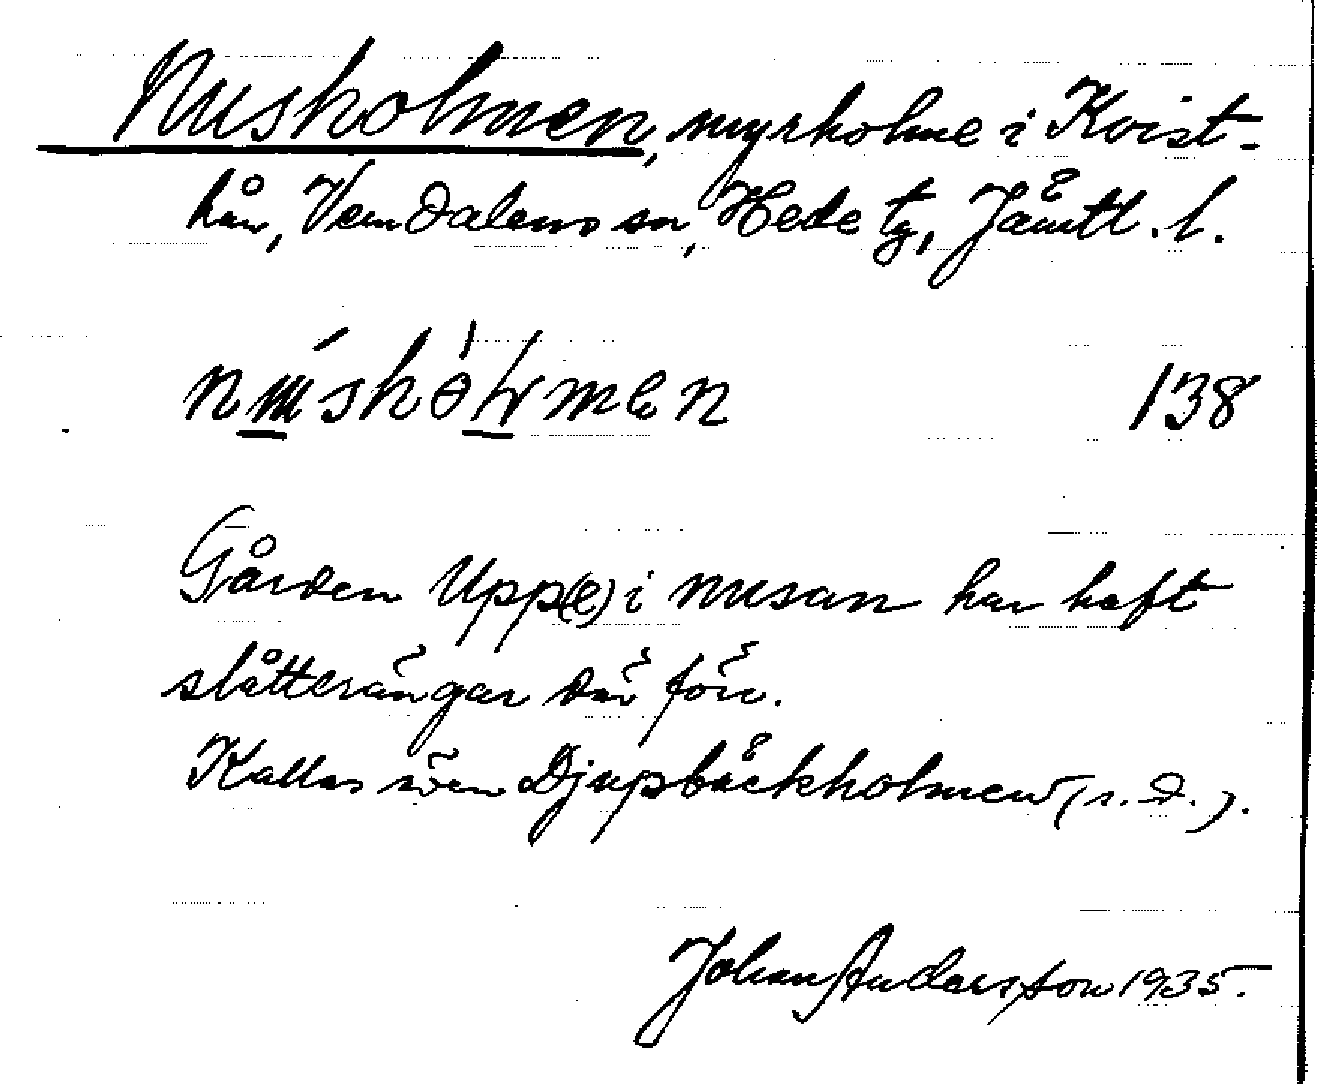 Nusholmen, myrholme i Kvist-
hån, Vemdalens sn, Hede tg, Jämtl. l.
138
Gården Upp(e) i nusan har haft
slåtterängar där förr.
Kallas även Djupbäckholmen (s. d.).
Johan Andersson 1935.